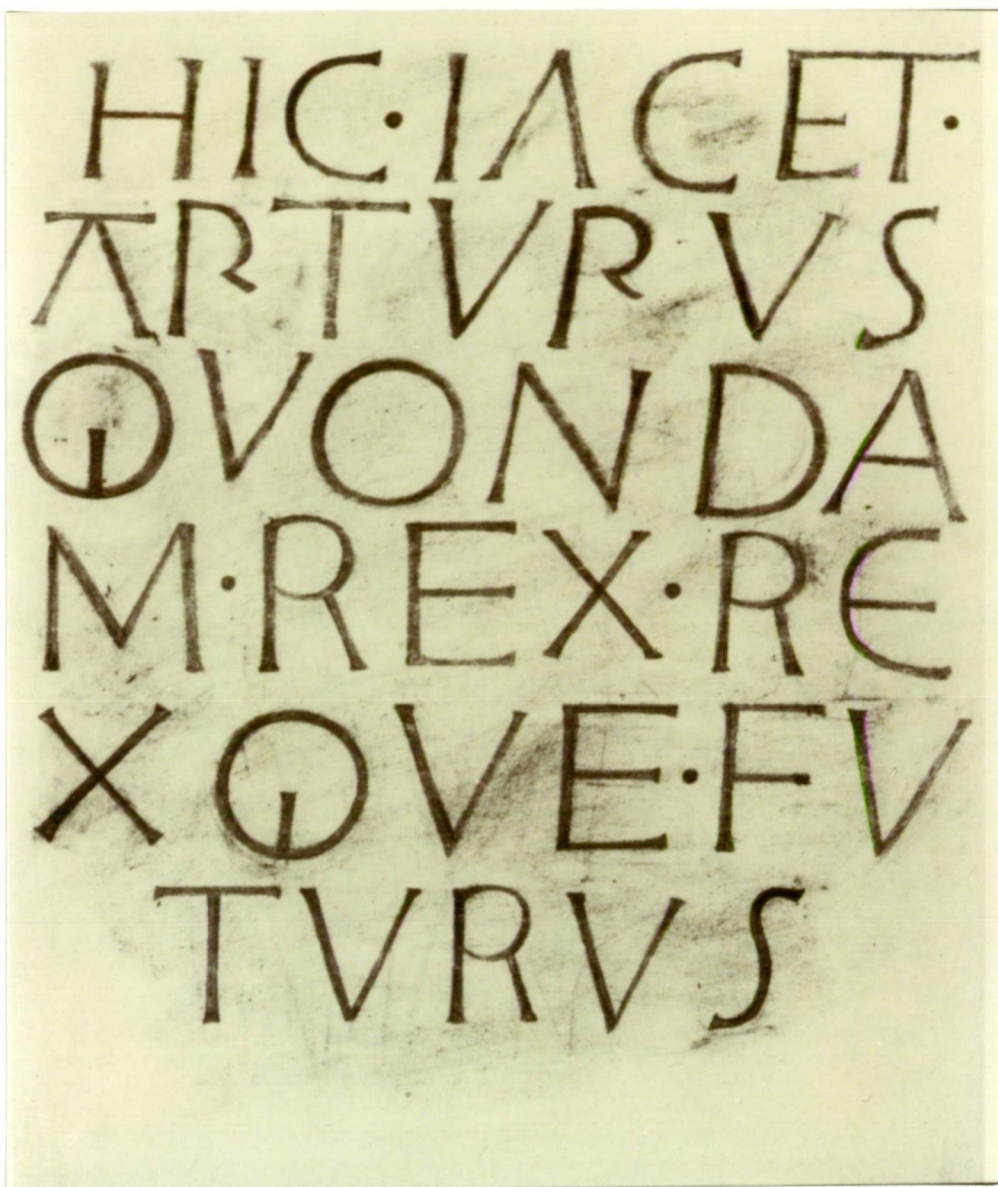 HIC·IACET·
ARTVRVS
QVONDA
M·REX·RE
XQVE·FV
TVRVS